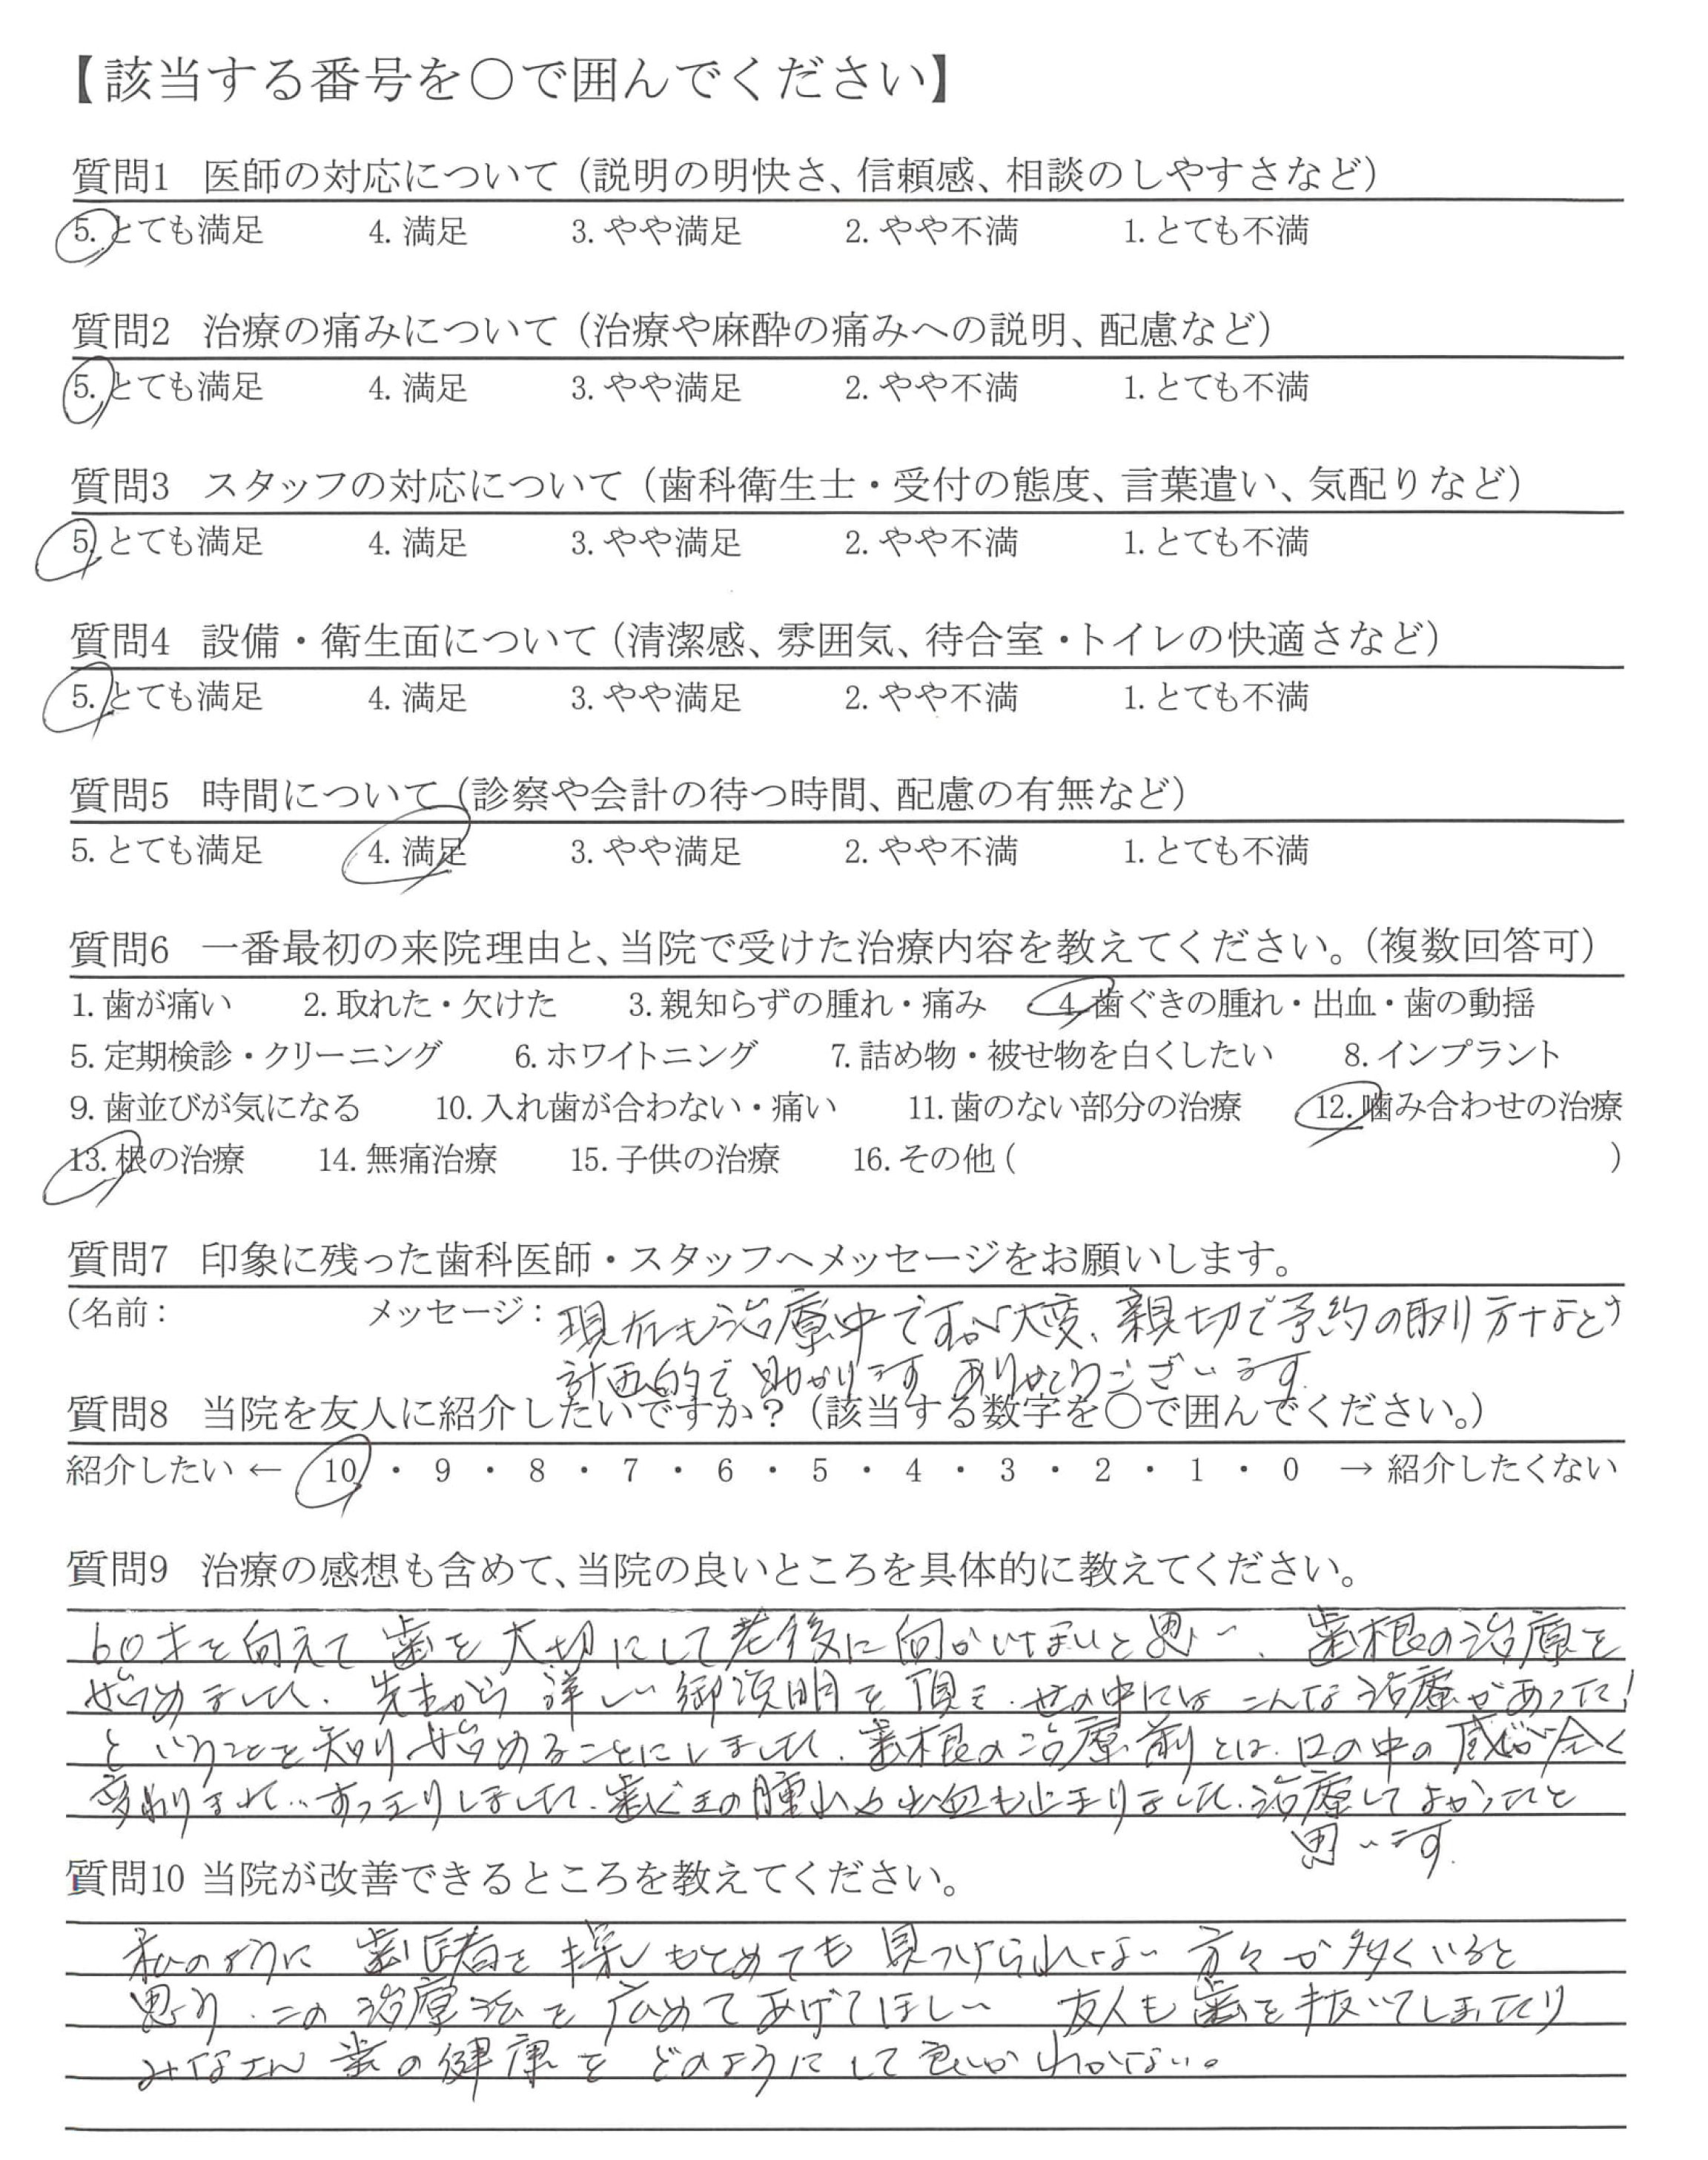 【該当する番号を○で囲んでください】
質問1 医師の対応について（説明の明快さ、信頼感、相談のしやすさなど）
5.とても満足 4.満足 3.やや満足 2.やや不満 1.とても不満
質問2 治療の痛みについて（治療や麻酔の痛みへの説明、配慮など）
5.とても満足 4.満足 3.やや満足 2.やや不満 1.とても不満
質問3 スタッフの対応について（歯科衛生士・受付の態度、言葉遣い、気配りなど）
5.とても満足 4.満足 3.やや満足 2.やや不満 1.とても不満
質問4 設備・衛生面について（清潔感、雰囲気、待合室・トイレの快適さなど）
5.とても満足 4.満足 3.やや満足 2.やや不満 1.とても不満
質問5 時間について（診察や会計の待つ時間、配慮の有無など）
5.とても満足 4.満足 3.やや満足 2.やや不満 1.とても不満
質問6 一番最初の来院理由と、当院で受けた治療内容を教えてください。（複数回答可）
1.歯が痛い 2.取れた・欠けた 3.親知らずの腫れ・痛み 4.歯ぐきの腫れ・出血・歯の動揺
5.定期検診・クリーニング 6.ホワイトニング 7.詰め物・被せ物を白くしたい 8.インプラント
9.歯並びが気になる 10.入れ歯が合わない・痛い 11.歯のない部分の治療 12.噛み合わせの治療
13.根の治療 14.無痛治療 15.子供の治療 16.その他（ ）
質問7 印象に残った歯科医師・スタッフへメッセージをお願いします。
（名前： メッセージ：現在も治療中ですが大変、親切で予約の取り方なども
計画的で助かります ありがとうございます
質問8 当院を友人に紹介したいですか？（該当する数字を○で囲んでください。）
紹介したい ← 10・9・8・7・6・5・4・3・2・1・0 → 紹介したくない
質問9 治療の感想も含めて、当院の良いところを具体的に教えてください。
60才を向えて歯を大切にして老後に向かいたいと思い、歯根の治療を
始めました。先生から詳しい御説明を頂き、世の中にはこんな治療があった！
ということを知り始めることにしました。歯根の治療前とは、口の中の感じが全く
変わりました。すっきりしました。歯ぐきの腫れや出血も止まりました。治療してよかったと
思います。
質問10 当院が改善できるところを教えてください。
私のように 歯医者を探しもとめても見つけられない方々が多くいると
思う、この治療法を広めてあげてほしい 友人も歯を抜いてしまったり
みなさん歯の健康をどのようにして良いかわからない。